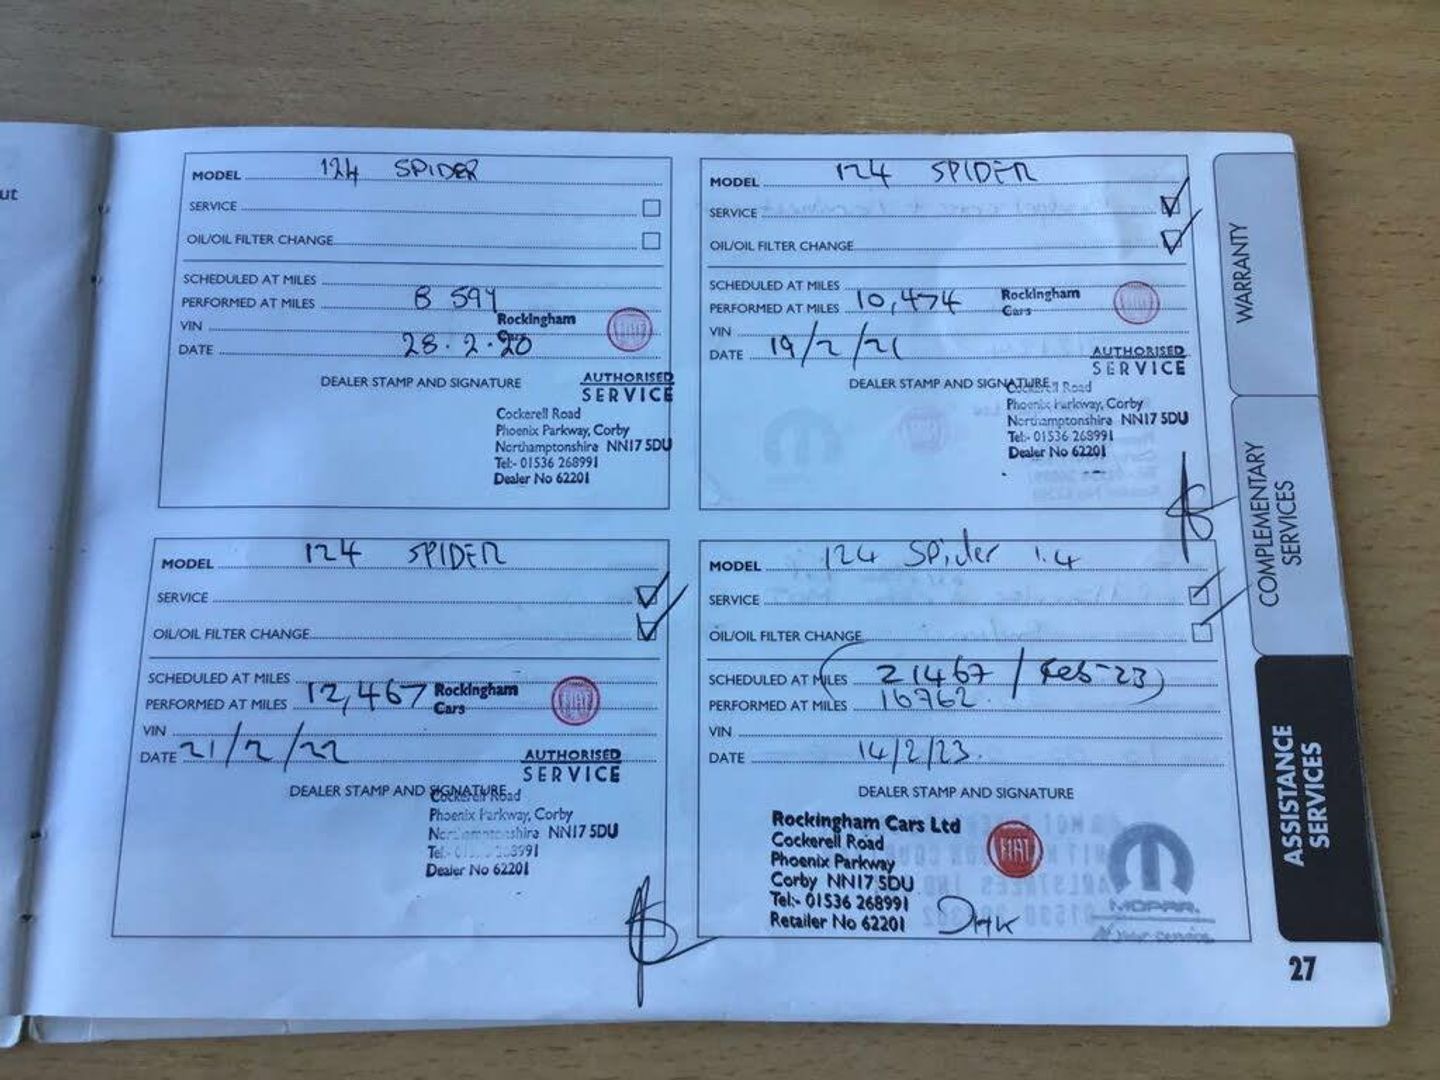 ut
MODEL 124 SPIDER
SERVICE
OIL/OIL FILTER CHANGE
SCHEDULED AT MILES
PERFORMED AT MILES 8 594
VIN
DATE 28.2.20
Rockingham
Cars
FIAT
DEALER STAMP AND SIGNATURE
AUTHORISED
SERVICE
Cockerell Road
Phoenix Parkway, Corby
Northamptonshire NN17 5DU
Tel:- 01536 268991
Dealer No 62201
MODEL 124 SPIDER
SERVICE
OIL/OIL FILTER CHANGE
SCHEDULED AT MILES
PERFORMED AT MILES 10,474
VIN
DATE 19/2/21
Rockingham
Cars
FIAT
AUTHORISED
SERVICE
DEALER STAMP AND SIGNATURE
Cockerell Road
Phoenix Parkway, Corby
Northamptonshire NN17 5DU
Tel:- 01536 268991
Dealer No 62201
MODEL 124 SPIDER
SERVICE
OIL/OIL FILTER CHANGE
SCHEDULED AT MILES
PERFORMED AT MILES 12,467
VIN
DATE 21/2/22
Rockingham
Cars
FIAT
AUTHORISED
SERVICE
DEALER STAMP AND SIGNATURE
Cockerell Road
Phoenix Parkway, Corby
Northamptonshire NN17 5DU
Tel:- 01536 268991
Dealer No 62201
MODEL 124 Spider 1.4
SERVICE
OIL/OIL FILTER CHANGE
SCHEDULED AT MILES (21467 / Feb-23)
PERFORMED AT MILES 16762
VIN
DATE 14/2/23.
DEALER STAMP AND SIGNATURE
Rockingham Cars Ltd
Cockerell Road
Phoenix Parkway
Corby NN17 5DU
Tel:- 01536 268991
Retailer No 62201
FIAT
WARRANTY
COMPLEMENTARY
SERVICES
ASSISTANCE
SERVICES
27